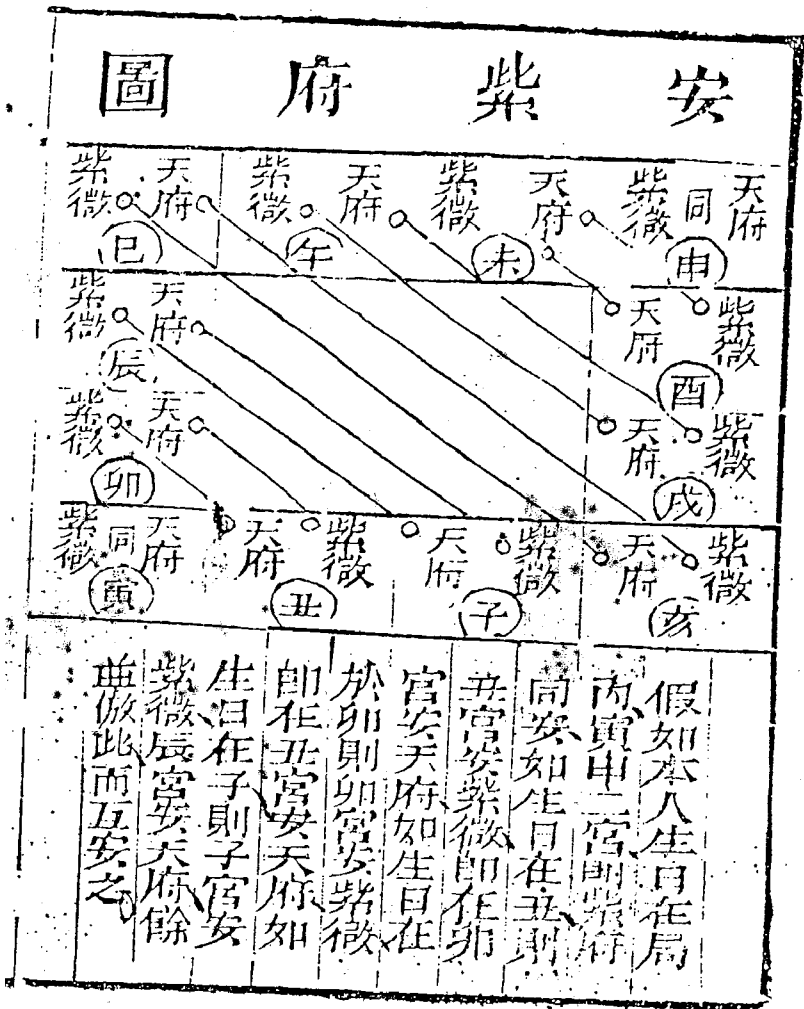 安紫府圖
天府 同 紫微 申
天府 紫微 未
天府 紫微 午
天府 紫微 巳
紫微 天府 酉
天府 紫微 辰
紫微 天府 戌
天府 紫微 卯
紫微 天府 亥
紫微 天府 子
紫微 天府 丑
天府 同 紫微 寅
假如本人生日在局
內寅申二宮則紫府
同安如生日在丑則
丑宮安紫微即在卯
宮安天府如生日在
於卯則卯宮安紫微
即在丑宮安天府如
生日在子則子宮安
紫微辰宮安天府餘
傲此而互安之